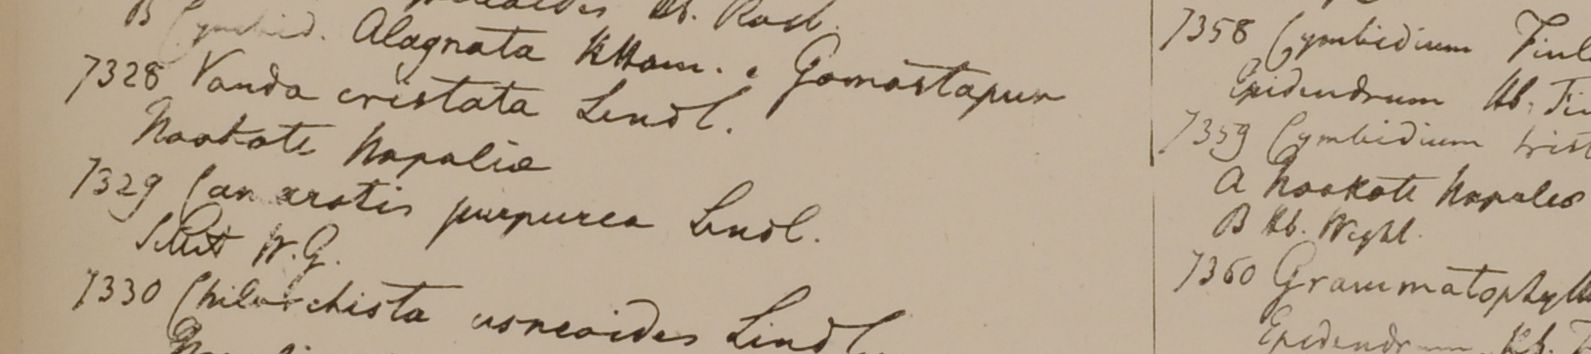 Hb. Roxb.
B Cymbid. Alagnata KHam. e Gomastapur
7328 Vanda cristata Lindl.
Noakote Napalia
7329 Camarotis purpurea Lindl.
Sillet W.G.
7330 Chilorchista usneoides Lindl.
7358 Cymbidium
Epidendrum Hb.
7359 Cymbidium
A Noakote Napales
B Hb. Wight.
7360
Epidendrum Hb.